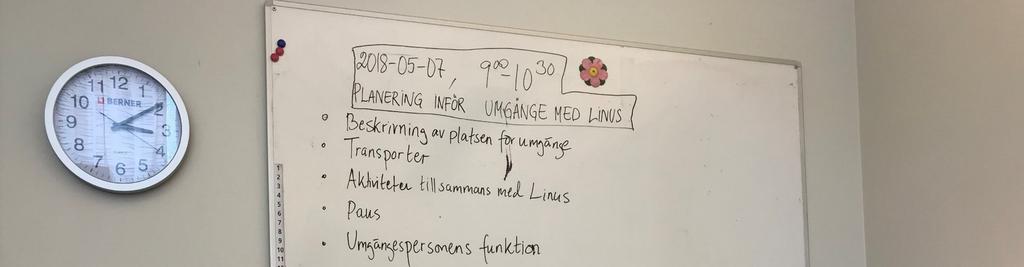 12
11
1
10
BERNER
2
9
3
8
4
7
6
5
2018-05-07, 9⁰⁰-10³⁰
PLANERING INFÖR UMGÄNGE MED LINUS
• Beskrivning av platsen för umgänge
• Transporter
• Aktiviteter tillsammans med Linus
• Paus
• Umgängespersonens funktion
1
2
3
4
5
6
7
8
9
10
11